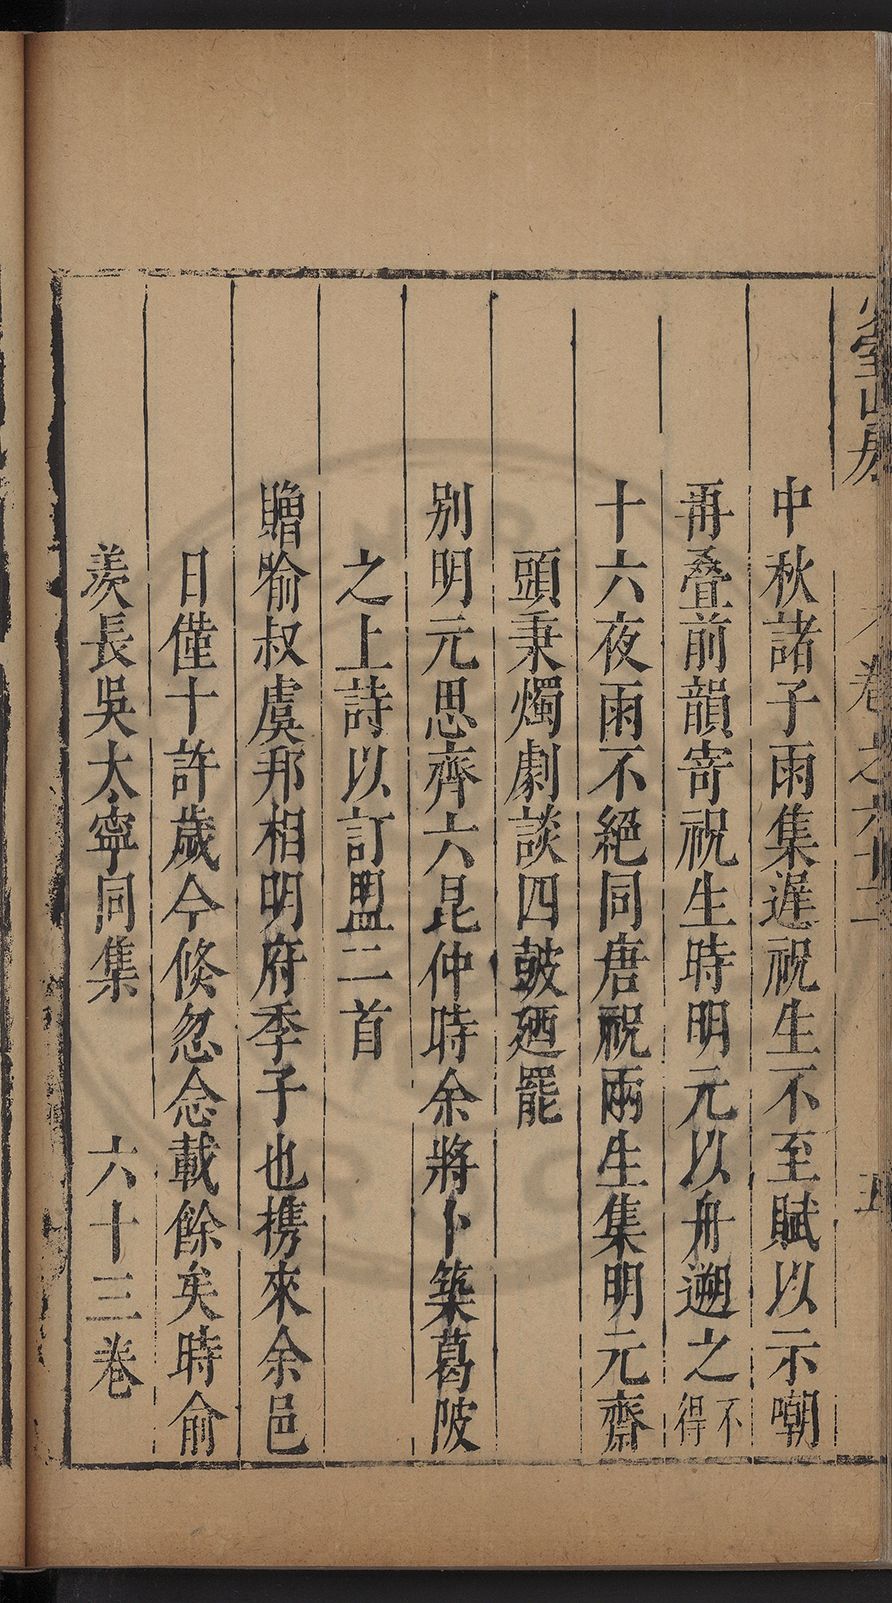 中秋諸子雨集遲祝生不至賦以示嘲
再疊前韻寄祝生時明元以舟遡之不得
十六夜雨不絕同唐祝兩生集明元齋
頭秉燭劇談四鼓廼罷
別明元思齊六昆仲時余將卜築葛陂
之上詩以訂盟二首
贈喻叔虞邦相明府季子也携來余邑
日僅十許歲今倏忽念載餘矣時俞
羨長吳太寧同集
六十三卷